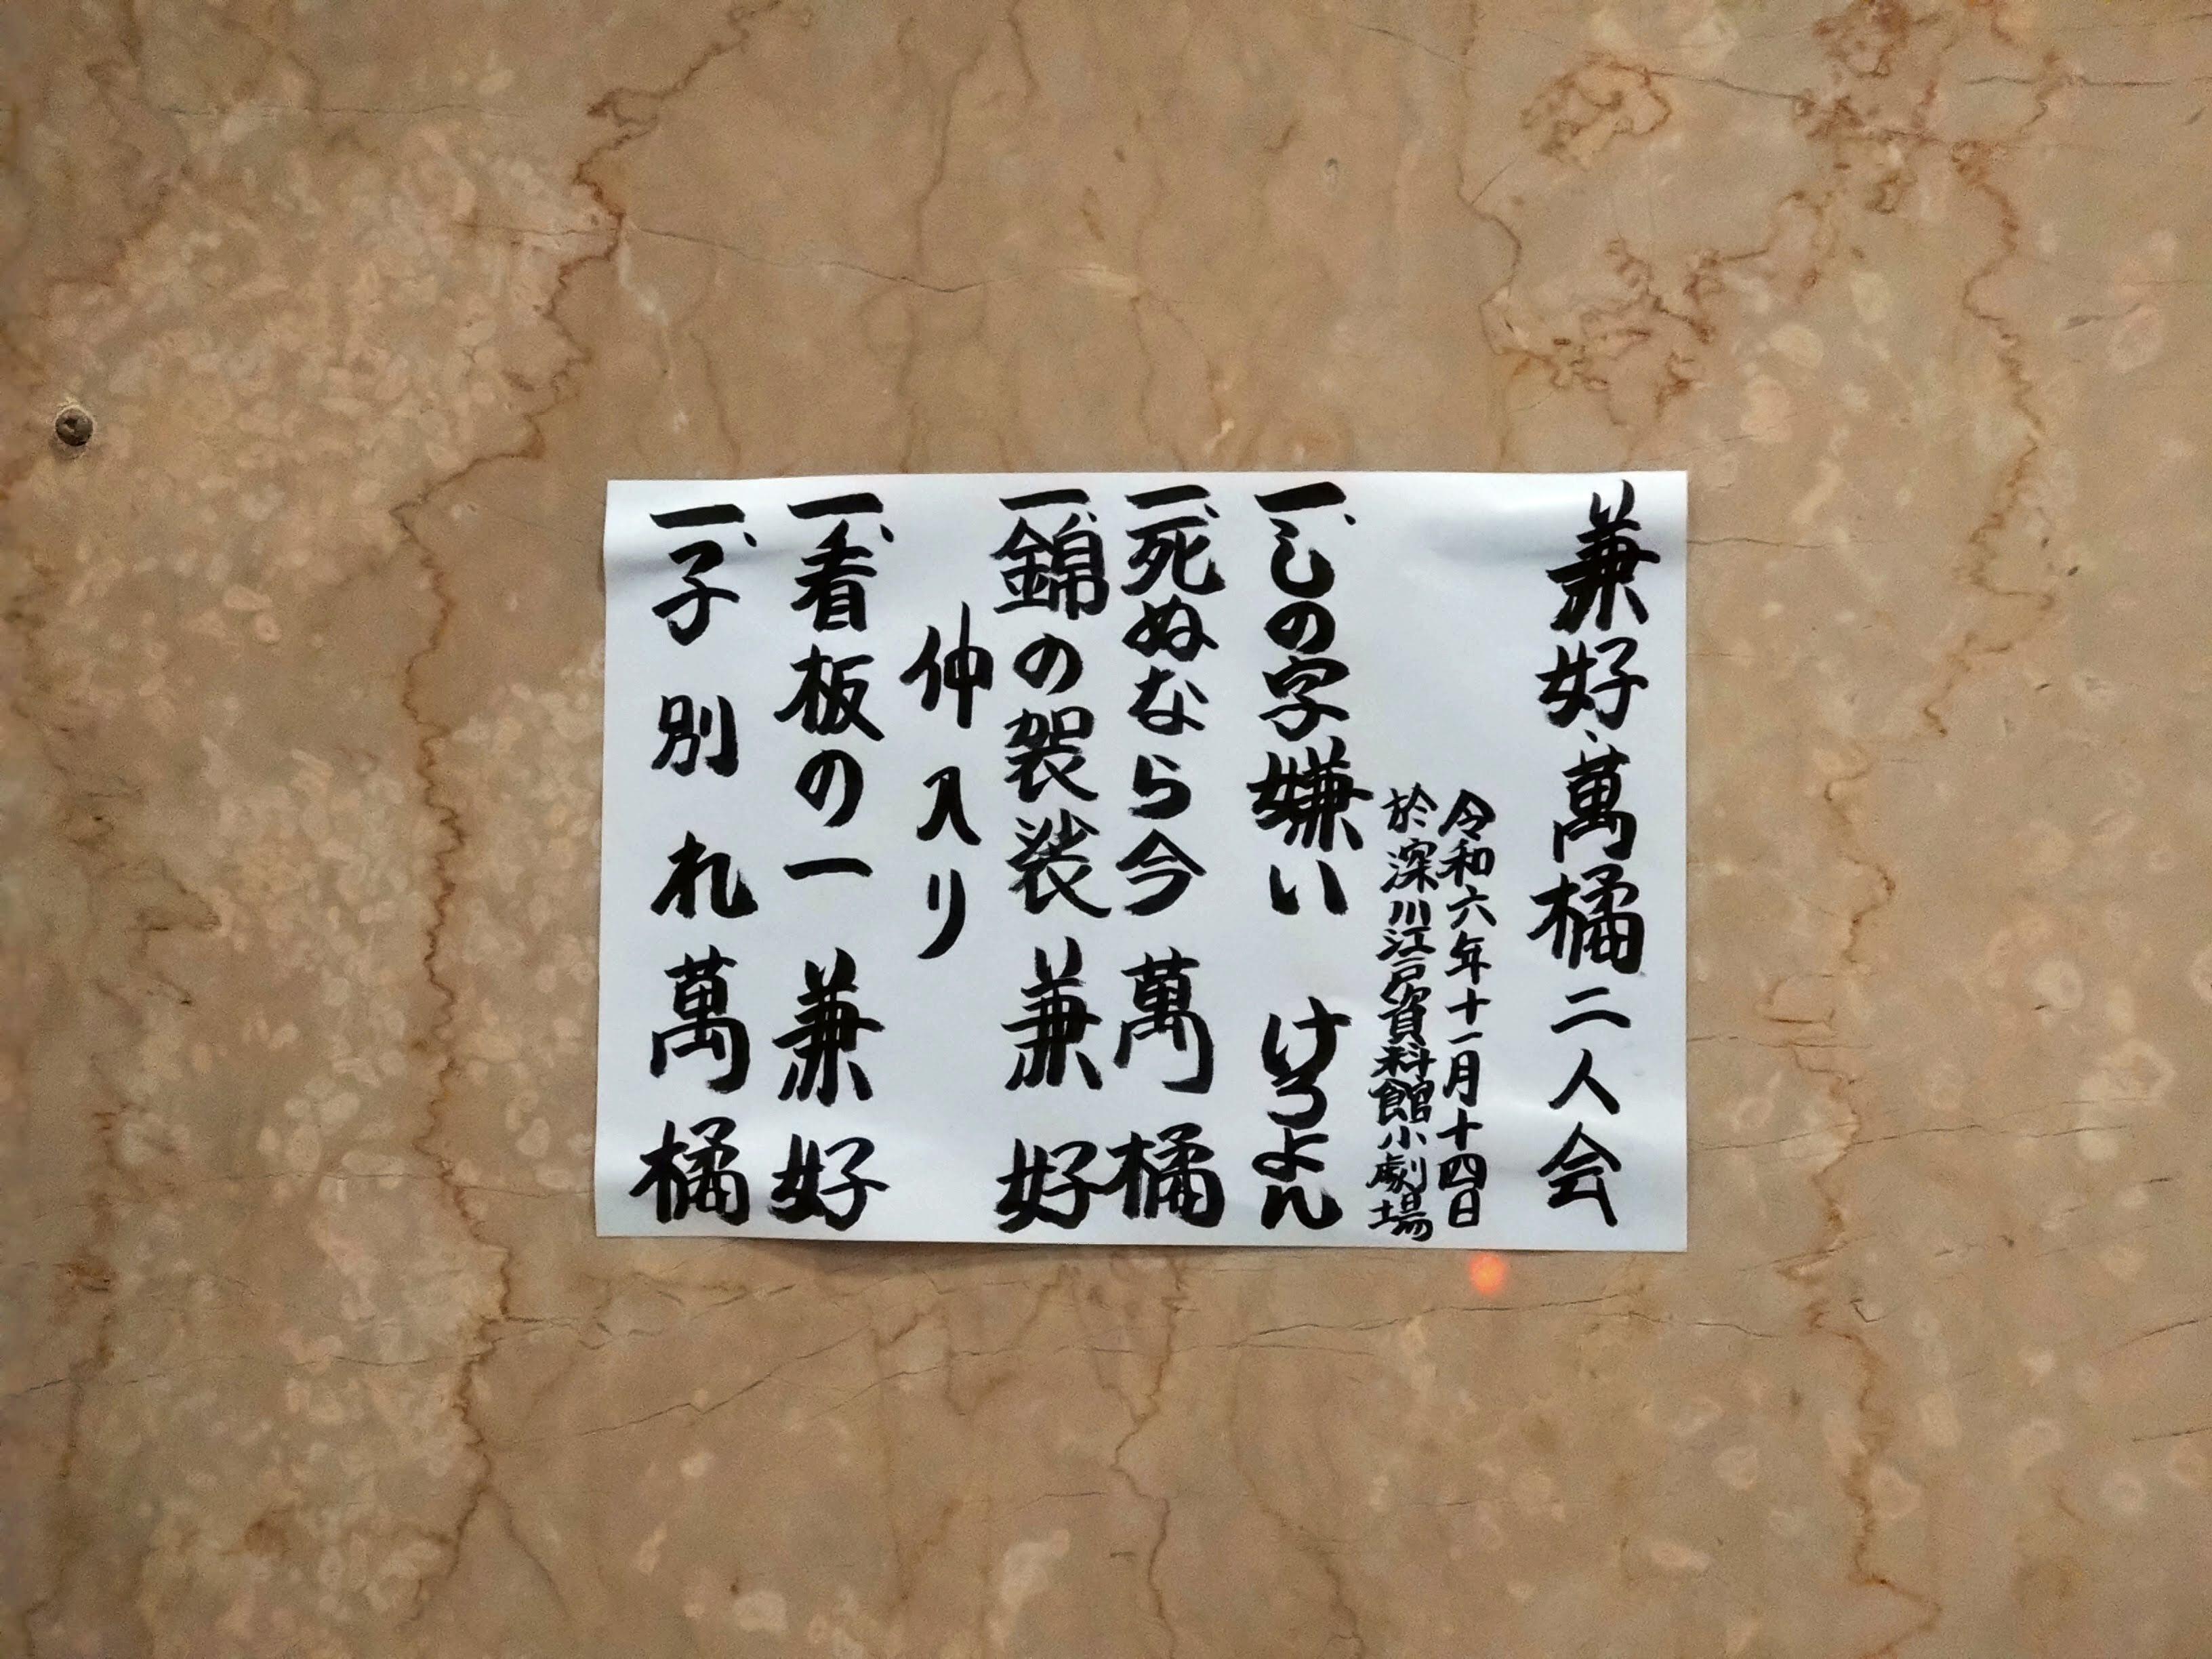 兼好・萬橘二人会
令和六年十一月十四日
於深川江戸資料館小劇場
一、しの字嫌い けろよん
一、死ぬなら今 萬橘
一、錦の袈裟 兼好
仲入り
一、看板の一 兼好
一、子別れ 萬橘